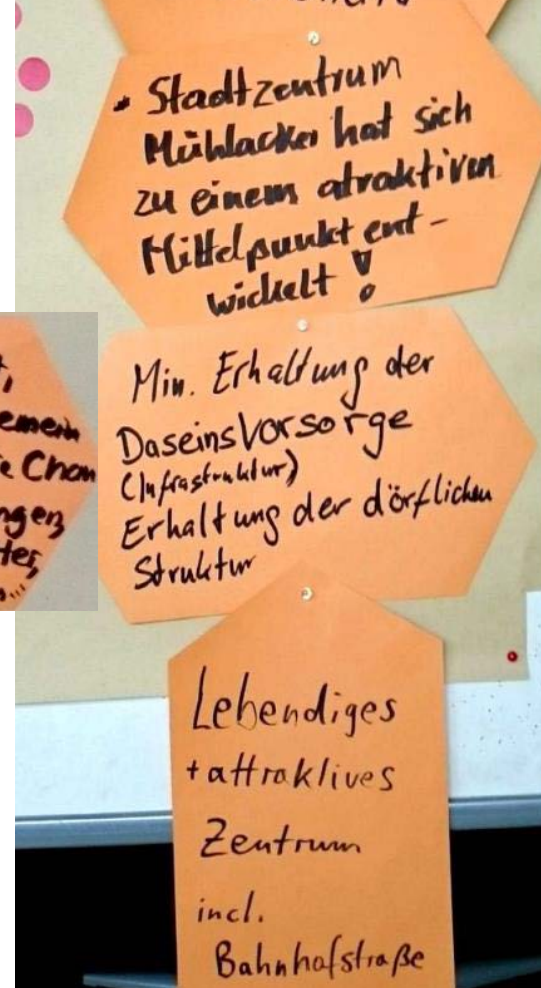 • Stadtzentrum
Mühlacker hat sich
zu einem atraktiven
Mittelpunkt ent-
wickelt !
Min. Erhaltung der
Daseinsvorsorge
(Infrastruktur)
Erhaltung der dörflichen
Struktur
Lebendiges
+ attraktives
Zentrum
incl.
Bahnhofstraße